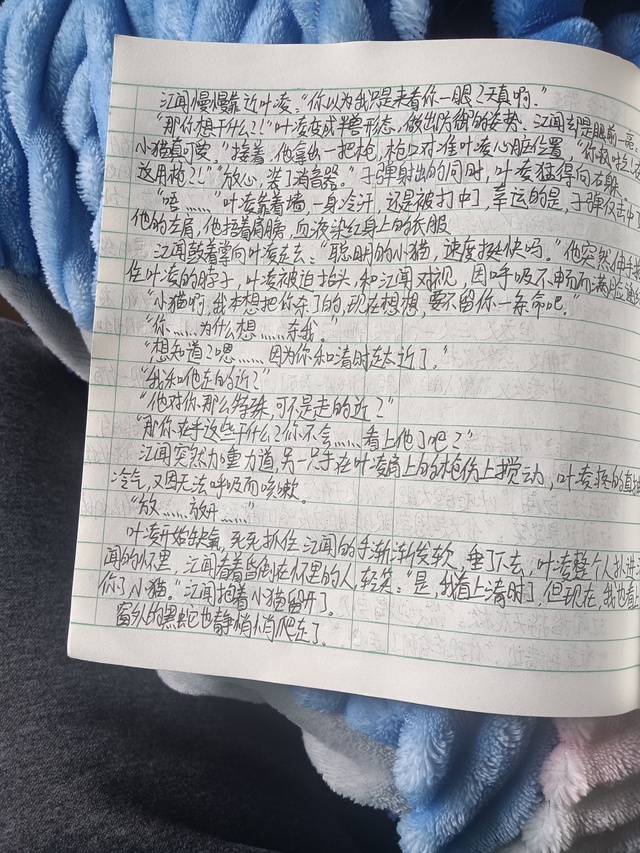 江闻慢慢靠近叶凌:“你以为我只是来看你一眼?天真啊。”
“那你想干什么?!”叶凌变成半兽形态,做出防御的姿势。江闻却是眼前一亮。
小猫真可爱。”接着,他拿出一把枪,枪口对准叶凌心脏位置,“你
这用枪?!”“放心,装了消音器。”子弹射出的同时,叶凌猛得向右躲
“唔……”叶凌靠着墙,一身冷汗,还是被打中了,幸运的是,子弹仅击中了
他的左肩,他捂着肩膀,血液染红身上的衣服
江闻鼓着掌向叶凌走去:“聪明的小猫,速度挺快吗。”他突然伸手
住叶凌的脖子,叶凌被迫抬头,和江闻对视,因呼吸不畅而满脸通
“小猫啊,我本想把你杀了的,现在想想,要不留你一条命吧。”
“你……为什么想……杀我。”
“想知道?嗯……因为你和清时走太近了。”
“我和他走的近?”
“他对你那么特殊,可不是走的近?”
“那你在乎这些干什么?你不会……看上他了吧?”
江闻突然加重力道,另一只手在叶凌肩上的枪伤上搅动,叶凌疼的直抽
冷气,又因无法呼吸而咳嗽。
“放……放开……”
叶凌开始缺氧,死死抓住江闻的手渐渐发软,垂了下去,叶凌整个人扑进江
闻的怀里,江闻看着昏倒在怀里的人,轻笑:“是,我看上清时了,但现在,我也看上
你了小猫。”江闻抱着小猫离开了。
窗外的黑蛇也静悄悄爬走了。